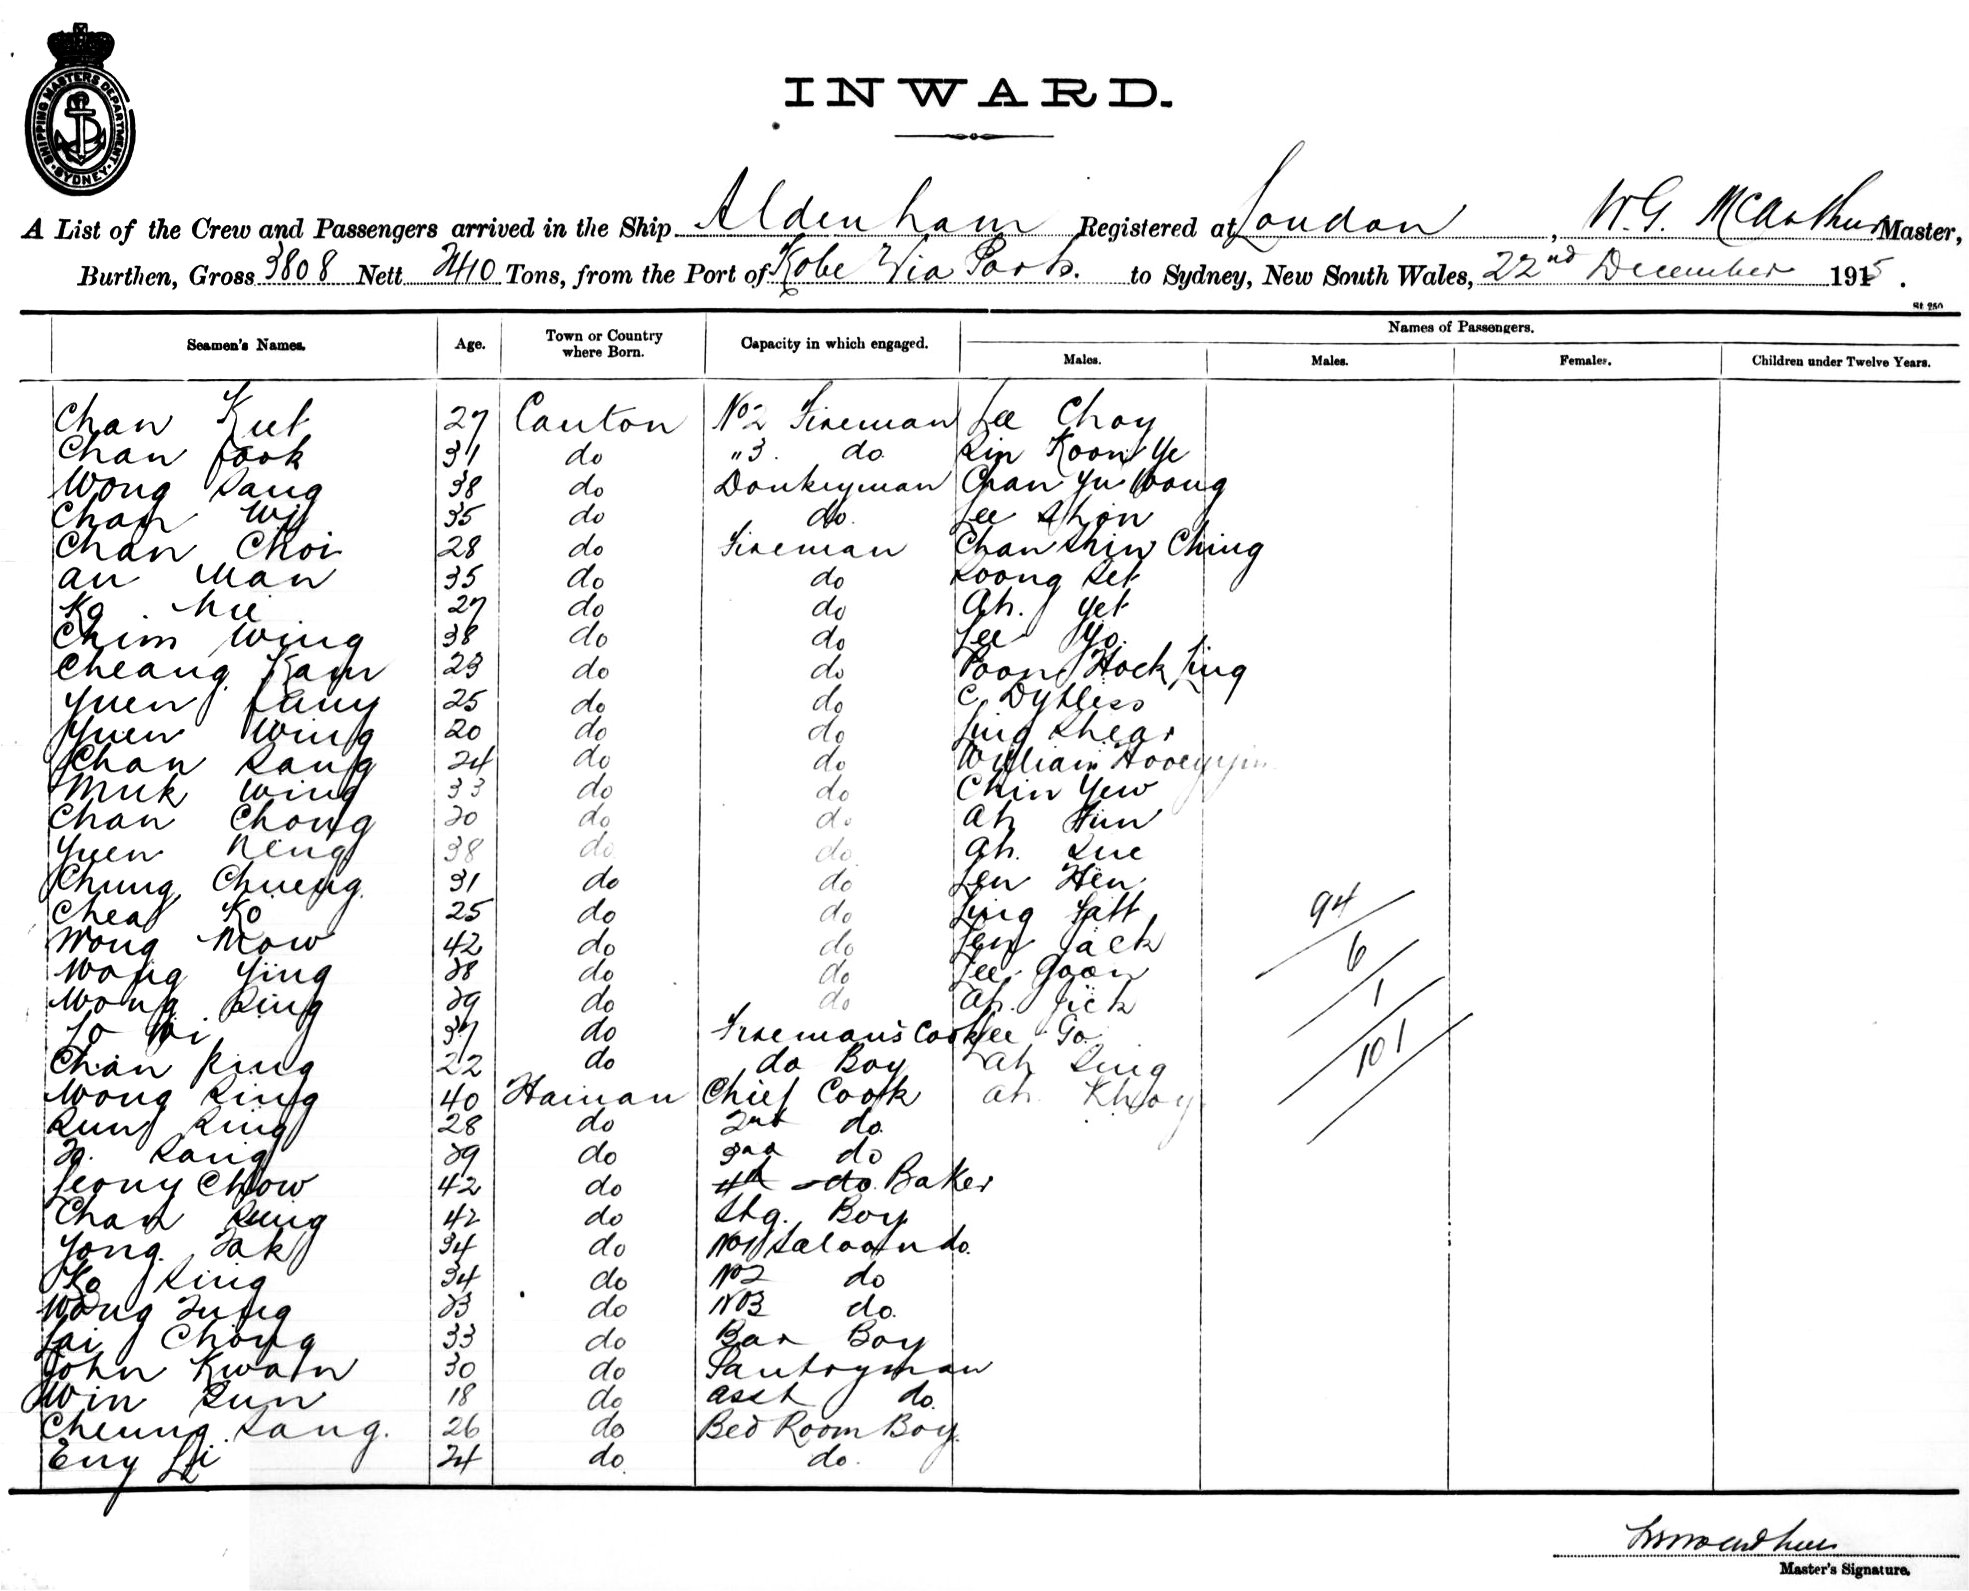 SHIPPING MASTERS DEPARTMENT
SYDNEY
INWARD.
A List of the Crew and Passengers arrived in the Ship Aldenham Registered at London, W. G. McArthur Master,
Burthen, Gross 3808 Nett 2410 Tons, from the Port of Kobe Via Ports. to Sydney, New South Wales, 22nd December 1915.
St 250
Seamen's Names. Age. Town or Country where Born. Capacity in which engaged. Names of Passengers.
Males. Males. Females. Children under Twelve Years.
Chan Kut 27 Canton No 2 Fireman Lee Choy
Chan Fook 31 do "3. do Sin Koon Ye
Wong Sang 38 do Donkeyman Chan Yu Wong
Chan Wy 35 do do. Lee Shon
Chan Choi 28 do Fireman Chan Shin Ching
au Man 35 do do Soong Set
Ko 27 do do Ah. Yet
Chim Wing 38 do do Lee Yo.
Cheang Kam 23 do do Poon Hock Ling
Yuen 25 do do C.
Yuen Wing 20 do do Shear
Chan Sang 24 do do William
Muk Wing 33 do do Chin Yew
Chan Chong 20 do do Ah Hun
Yuen Neng 38 do do Ah. Sue
Chung Chueng 31 do do Len Hen
Chea Ko 25 do do 94
Wong Mow 42 do do Jack 6
Wong Ying 28 do do Lee Goon 1
Wong Sing 29 do do Ah. Jick
Lo 37 do Firemans Cook Lee Go 101
Chan 22 do do Boy Ah Sing
Wong Sing 40 Hainan Chief Cook Ah. Khoy
Sun Sing 28 do 2nd do
Sang 29 do 3rd do
Leony Chow 42 do 4th do Baker
Chan Sung 42 do Stg. Boy
Yong Fak 34 do No 1 Saloon do.
Ko Sing 34 do No 2 do
Wong Tung 23 do No 3 do.
Lai Chong 33 do Bar Boy
John Kwain 30 do Pantryman
Win Sun 18 do asst do.
Cheung Sang. 26 do Bed Room Boy.
Eny Li 24 do. do.
Master's Signature.